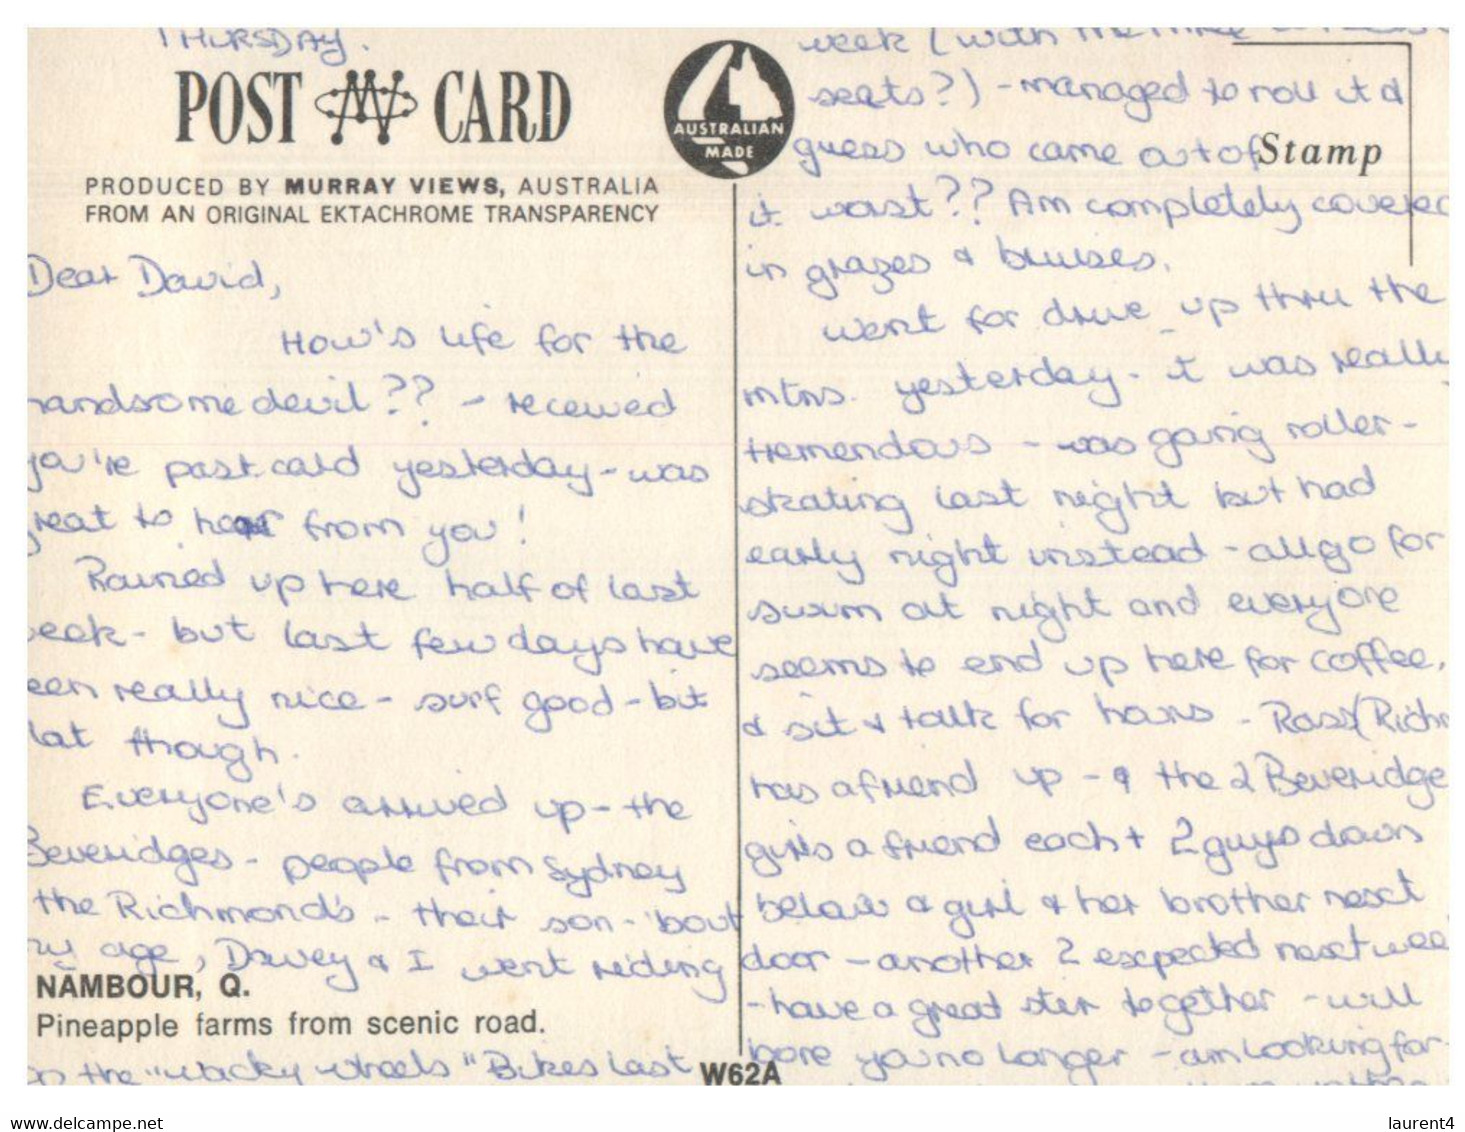 THURSDAY.
POST CARD
PRODUCED BY MURRAY VIEWS, AUSTRALIA
FROM AN ORIGINAL EKTACHROME TRANSPARENCY
AUSTRALIAN
MADE
Stamp
Dear David,
How's life for the
handsome devil?? - received
you're postcard yesterday - was
great to hear from you!
Rained up here half of last
week - but last few days have
been really nice - surf good - bit
flat though.
Everyone's arrived up - the
Beveridges - people from Sydney
the Richmond's - their son - 'bout
my age, Davey & I went riding
NAMBOUR, Q.
Pineapple farms from scenic road.
on the "wacky wheels" Bikes last
W62A
week (with the
seats?) - managed to roll it &
guess who came out of
it worst?? Am completely covered
in grazes & bruises.
Went for drive up thru the
mtns. yesterday - it was really
tremendous - was going roller-
skating last night but had
early night instead - all go for
swim at night and everyone
seems to end up here for coffee,
& sit & talk for hours - Ross (Richm
has a friend up - & the 2 Beveridge
girls a friend each + 2 guys down
below & girl & her brother next
door - another 2 expected next wee
- have a great stir together - will
bore you no longer - am looking for-
laurent4
delcampe.net